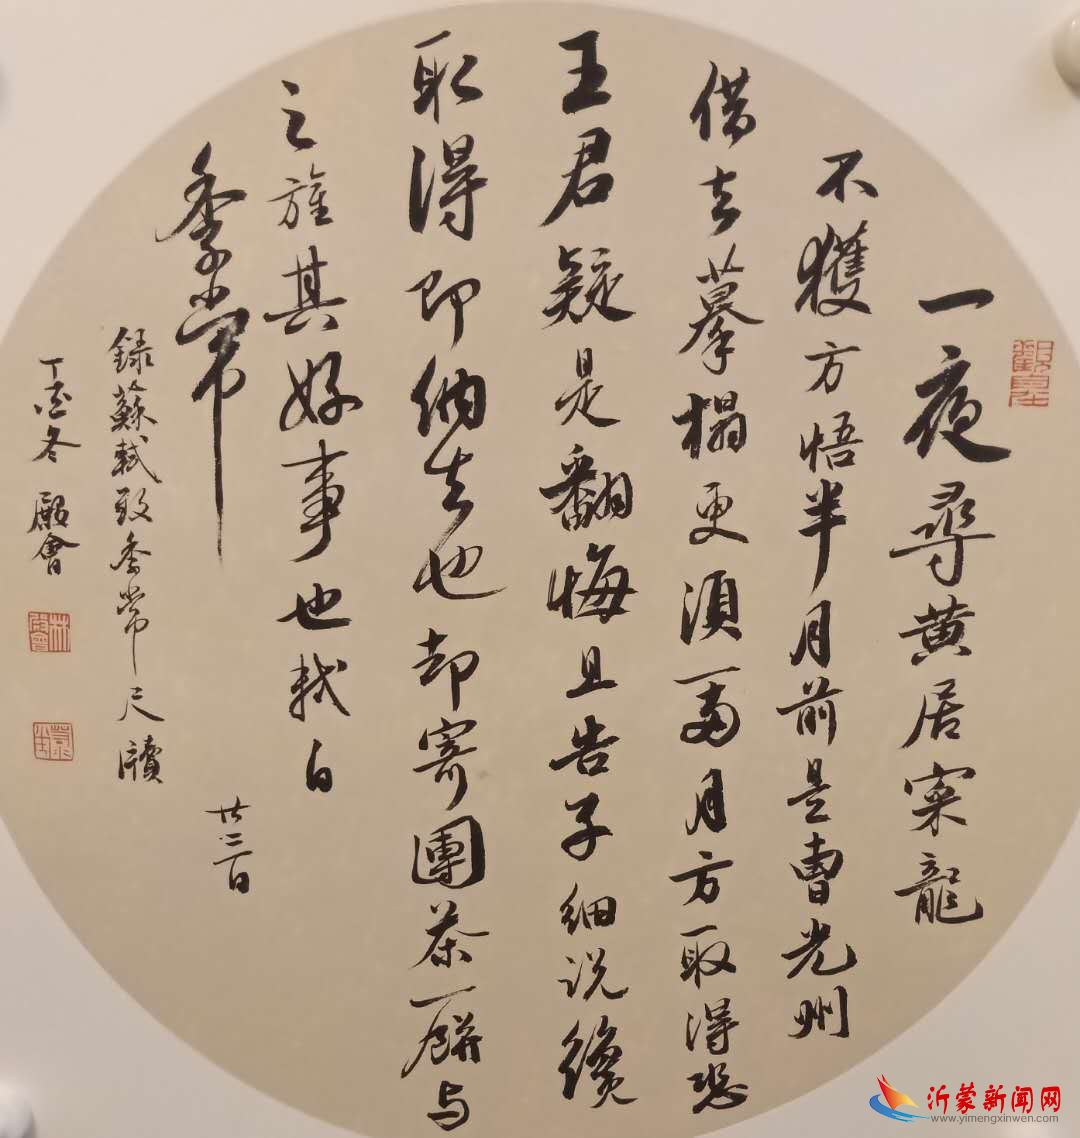 一夜尋黄居寀龍
不獲方悟半月前是曹光州
借去摹搨更須一兩月方取得恐
王君疑是翻悔且告子細説纔
取得即納去也却寄團茶一餅与
之旌其好事也軾白
季常
廿三日
録蘇軾致季常尺牘
丁酉冬 殿會
沂蒙新闻网
www.yimengxinwen.com